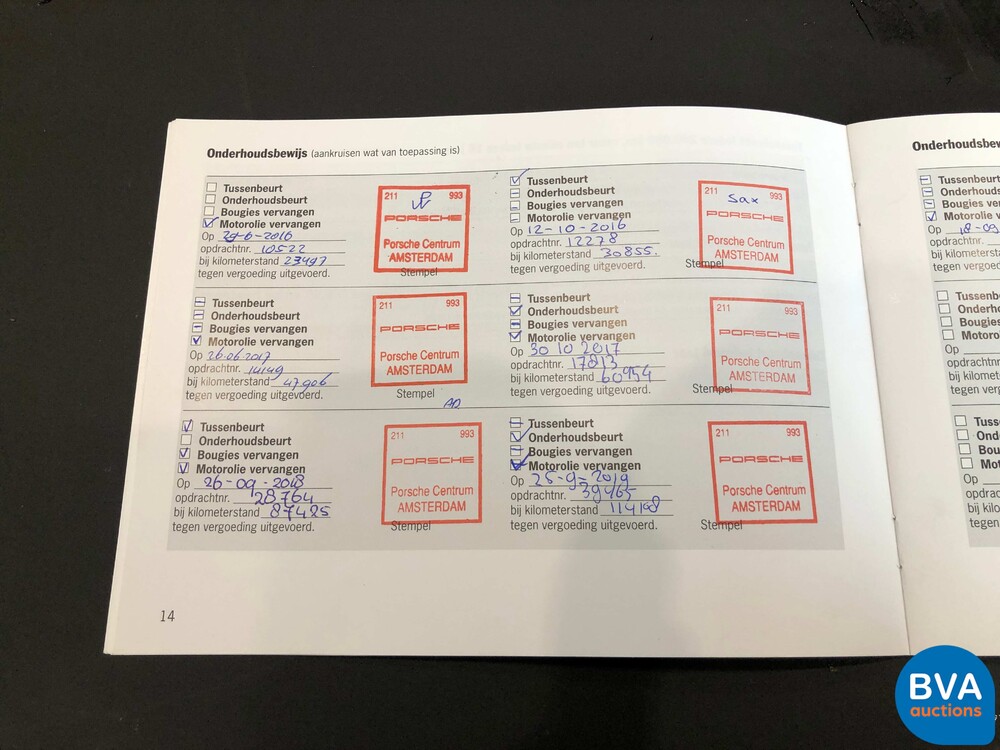 Onderhoudsbewijs (aankruisen wat van toepassing is)
Tussenbeurt
Onderhoudsbeurt
Bougies vervangen
Motorolie vervangen
Op 29-6-2016
opdrachtnr. 10522
bij kilometerstand 23497
tegen vergoeding uitgevoerd.
211 993
PORSCHE
Porsche Centrum
AMSTERDAM
Stempel
Tussenbeurt
Onderhoudsbeurt
Bougies vervangen
Motorolie vervangen
Op 12-10-2016
opdrachtnr. 12278
bij kilometerstand 30855.
tegen vergoeding uitgevoerd.
211 993
sax
PORSCHE
Porsche Centrum
AMSTERDAM
Stempel
Tussenbeurt
Onderhoudsbeurt
Bougies vervangen
Motorolie vervangen
Op 26-06-2017
opdrachtnr. 14149
bij kilometerstand 47906
tegen vergoeding uitgevoerd.
211 993
PORSCHE
Porsche Centrum
AMSTERDAM
Stempel
Tussenbeurt
Onderhoudsbeurt
Bougies vervangen
Motorolie vervangen
Op 30 10 2017
opdrachtnr. 17813
bij kilometerstand 60954
tegen vergoeding uitgevoerd.
211 993
PORSCHE
Porsche Centrum
AMSTERDAM
Stempel
Tussenbeurt
Onderhoudsbeurt
Bougies vervangen
Motorolie vervangen
Op 26-09-2018
opdrachtnr. 28764
bij kilometerstand 87425
tegen vergoeding uitgevoerd.
211 993
PORSCHE
Porsche Centrum
AMSTERDAM
Stempel
Tussenbeurt
Onderhoudsbeurt
Bougies vervangen
Motorolie vervangen
Op 25-9-2019
opdrachtnr. 39465
bij kilometerstand 114198
tegen vergoeding uitgevoerd.
211 993
PORSCHE
Porsche Centrum
AMSTERDAM
Stempel
14
Onderhoudsbew
Tussenbeurt
Onderhouds
Bougies ve
Motorolie v
Op 18-09
opdrachtnr.
bij kilomete
tegen verg
Tussenb
Onderho
Bougies
Motorol
Op
opdracht
bij kilom
tegen v
Tuss
Ond
Bou
Mot
Op
opdra
bij kil
tegen
BVA
auctions